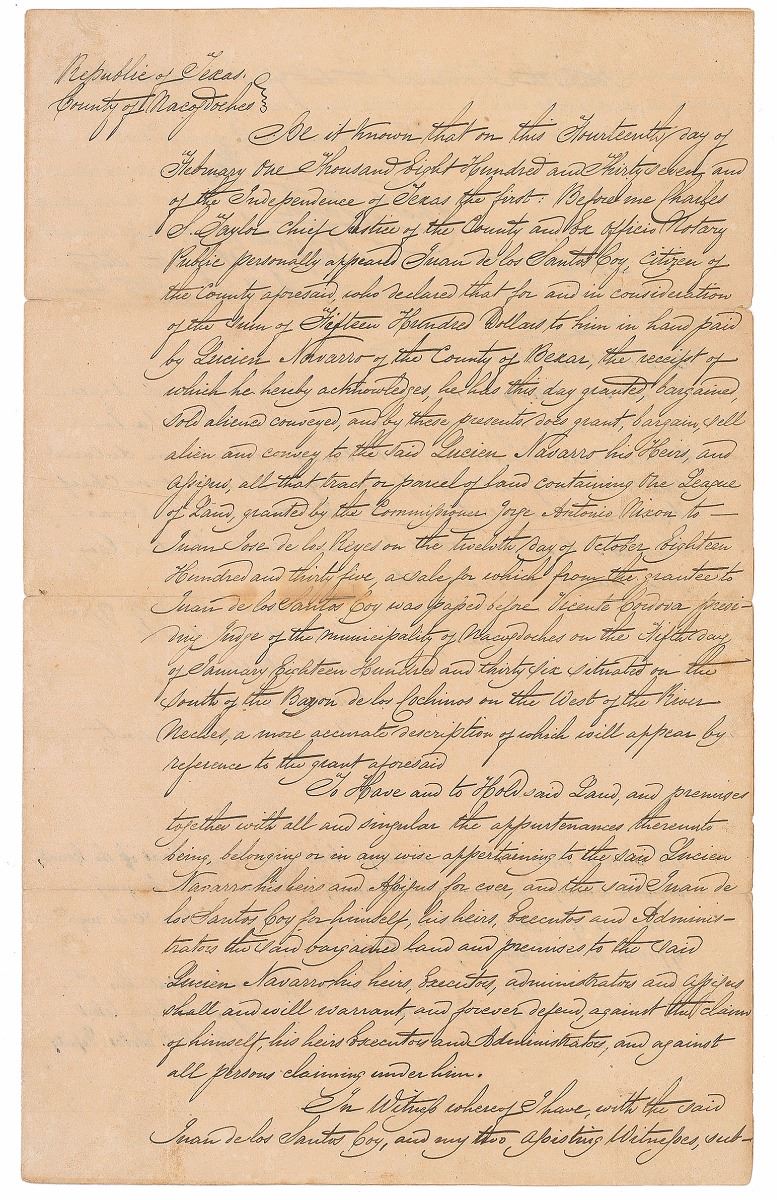 Republic of Texas.
County of Nacogdoches
Be it known that on this Fourteenth day of
February One Thousand Eight Hundred and Thirty seven, and
of the Independence of Texas the first: Before me Charles
S. Taylor Chief Justice of the County and Ex Officio Notary
Public personally appeared Juan de los Santos Coy, citizen of
the County aforesaid, who declared that for and in consideration
of the sum of Fifteen Hundred Dollars to him in hand paid
by Lucien Navarro of the County of Bexar, the receipt of
which he hereby acknowledges, he has this day granted, bargained,
sold aliened conveyed, and by these presents does grant, bargain, sell
alien and convey to the said Lucien Navarro his Heirs, and
assigns, all that tract or parcel of land containing One League
of Land, granted by the Commissioner Jorge Antonio Nixon to —
Juan Jose de los Reyes on the twelvth day of October Eighteen
Hundred and thirty five, a sale for which from the grantee to
Juan de los Santos Coy was passed before Vicente Cordova presi-
ding Judge of the municipality of Nacogdoches on the Fifth day
of January Eighteen Hundred and thirty six situated on the
South of the Bayon de los Cochinos on the West of the River
Neches, a more accurate description of which will appear by
reference to the grant aforesaid
To Have and to Hold said Land, and premises
together with all and singular the appurtenances thereunto
being, belonging or in any wise appertaining to the said Lucien
Navarro his heirs and Assigns for ever, and the said Juan de
los Santos Coy for himself, his heirs, Executors and Adminis-
trators the said bargained land and premises, to the said
Lucien Navarro his heirs, Executors, administrators and assigns
shall and will warrant, and forever defend, against the claim
of himself, his heirs Executors and Administrators, and against
all persons claiming under him.
In Witness whereof I have, with the said
Juan de los Santos Coy, and my two assisting Witnesses, sub-